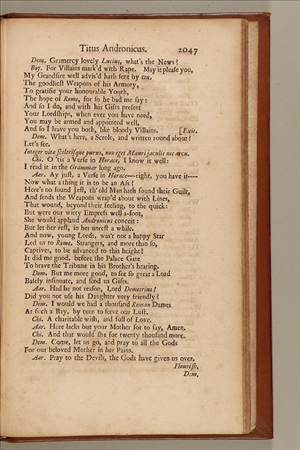 Titus Andronicus. 2047
Dem. Gramercy lovely Lucius, what's the News?
Boy. For Villains mark'd with Rape. May it please you,
My Grandsire well advis'd hath sent by me,
The goodliest Weapons of his Armory,
To gratifie your honourable Youth,
The hope of Rome, for so he bad me say:
And so I do, and with his Gifts present
Your Lordships, when ever you have need,
You may be armed and appointed well,
And so I leave you both, like bloody Villains. [Exit.
Dem. What's here, a Scrole, and written round about?
Let's see.
Integer vitæ scelerisque purus, non eget Mauri jaculis nec arcu.
Chi. O 'tis a Verse in Horace, I know it well:
I read it in the Grammer long ago.
Aar. Ay just, a Verse in Horace—right, you have it----
Now what a thing it is to be an Ass?
Here's no found Jest, th' old Man hath found their Guilt,
And sends the Weapons wrap'd about with Lines,
That wound, beyond their feeling, to the quick:
But were our witty Empress well a-foot,
She would applaud Andronicus conceit:
But let her rest, in her unrest a while.
And now, young Lords, was't not a happy Star
Led us to Rome, Strangers, and more than so,
Captives, to be advanced to this height?
It did me good, before the Palace Gate
To brave the Tribune in his Brother's hearing.
Dem. But me more good, to see so great a Lord
Basely insinuate, and send us Gifts.
Aar. Had he not reason, Lord Demetrius?
Did you not use his Daughter very friendly?
Dem. I would we had a thousand Roman Dames
At such a Bay, by turn to serve our Lust.
Chi. A charitable wish, and full of Love.
Aar. Here lacks but your Mother for to say, Amen.
Chi. And that would she for twenty thousand more.
Dem. Come, let us go, and pray to all the Gods
For our beloved Mother in her Pains.
Aar. Pray to the Devils, the Gods have given us over.
Flourish.
Dem.